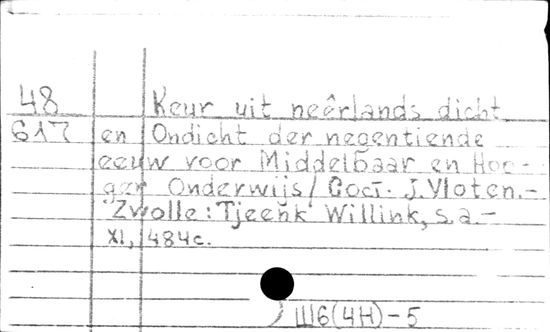 48 Keur uit neêrlands dicht
617 en Ondicht der negentiende
eeuw voor Middelbaar en Hoo-
ger Onderwijs / Сост. J. Vloten.-
Zwolle: Tjeenk Willink, s.a.-
XI, 484c.
Ш6(4Н)-5